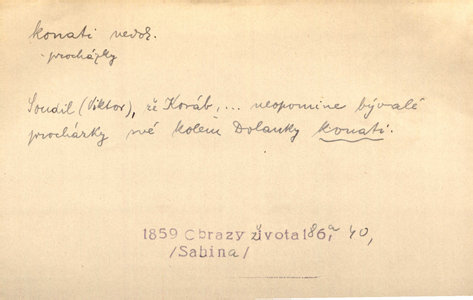 konati nedok.
procházky
Soudil (Viktor), že Koráb,... neopomine bývalé
procházky své kolem Dolanky konati.
1859 Obrazy života 186,a 40,
/Sabina/